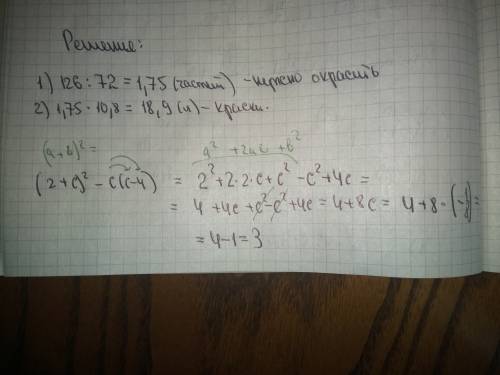 Решение:
1) 126 : 72 = 1,75 (частей) - нужно окрасить
2) 1,75 · 10,8 = 18,9 (л) - краски.
(a+b)² = a² + 2ab + b²
(2+c)² - c(c-4) = 2² + 2·2·c + c² - c² + 4c =
= 4 + 4c + c² - c² + 4c = 4 + 8c = 4 + 8 · (-1/8) =
= 4 - 1 = 3